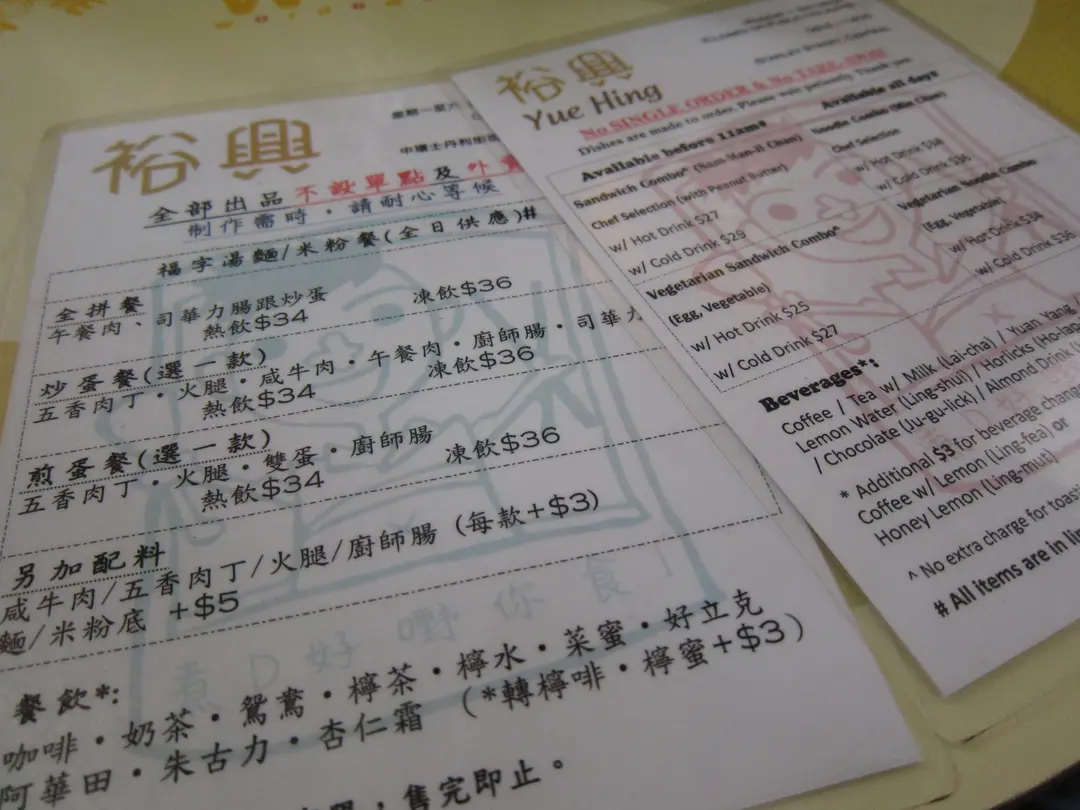 裕興
星期一至六
中環士丹利街
全部出品 不設單點 及 外賣
制作需時，請耐心等候
福字湯麵/米粉餐(全日供應)#
全拼餐
午餐肉、司華力腸跟炒蛋
熱飲$34 凍飲$36
炒蛋餐(選一款)
五香肉丁・火腿・咸牛肉・午餐肉・廚師腸・司華力
熱飲$34 凍飲$36
煎蛋餐(選一款)
五香肉丁・火腿・雙蛋・廚師腸
熱飲$34 凍飲$36
另加配料
咸牛肉/五香肉丁/火腿/廚師腸 (每款+$3)
麵/米粉底 +$5
煮D好嘢你食
餐飲*:
咖啡・奶茶・鴛鴦・檸茶・檸水・菜蜜・好立克
阿華田・朱古力・杏仁霜 (*轉檸啡・檸蜜+$3)
售完即止。
裕興
Yue Hing
No SINGLE ORDER & No TAKE AWAY
Dishes are made to order. Please wait patiently. Thank you.
Available before 11ams
Sandwich Combo* (Sam-Man-Ji Chan)
Chef Selection (with Peanut Butter)
w/ Hot Drink $27
w/ Cold Drink $29
Vegetarian Sandwich Combo*
(Egg, Vegetable)
w/ Hot Drink $25
w/ Cold Drink $27
Available all days
Noodle Combo (Min Chan)
Chef Selection
w/ Hot Drink $34
w/ Cold Drink $36
Vegetarian Noodle Combo
(Egg, Vegetable)
w/ Hot Drink $34
w/ Cold Drink $36
Beverages*:
Coffee / Tea w/ Milk (Lai-cha) / Yuan Yang /
Lemon Water (Ling-shui) / Horlicks (Ho-lap
/ Chocolate (Ju-gu-lick) / Almond Drink
* Additional $3 for beverage chang
Coffee w/ Lemon (Ling-fea) or
Honey Lemon (Ling-mut)
^ No extra charge for toasti
# All items are in lim